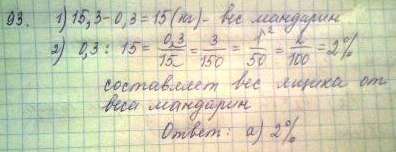 93. 1) 15,3 - 0,3 = 15 (кг) - вес мандарин
2) 0,3 : 15 = 0,3/15 = 3/150 = 1/50 = 2/100 = 2%
составляет вес ящика от
веса мандарин
Ответ: а) 2%